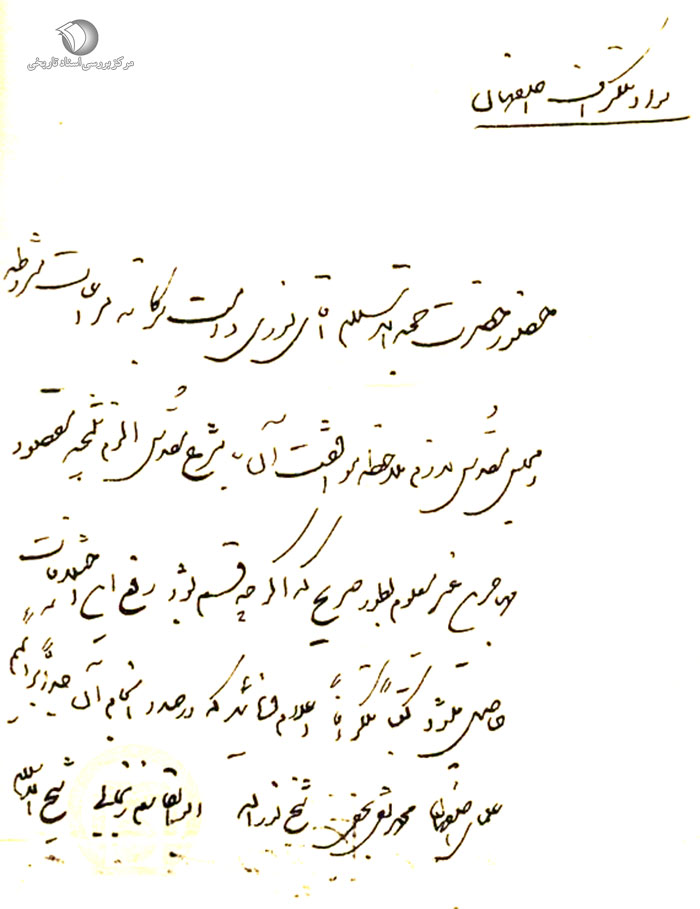 مرکز بررسی اسناد تاریخی
سواد تلگراف اصفهان
حضور حضرت حجة الاسلام آقای نوری دامت برکاته مراعات مشروطه
و مجلس مقدس ملاحظه موافقت آن با شرع مقدس الزم نتیجه مقصود
مهاجرین غیر معلوم بطور صریح که اگر چه قسم شود رفع این اختلافات
حاصل میشود کتباً تلگرافاً اعلام فرمائید که در صدد انجام آن
علمای اصفهان محمد تقی نجفی شیخ نورالله ابوالقاسم زنجانی شیخ